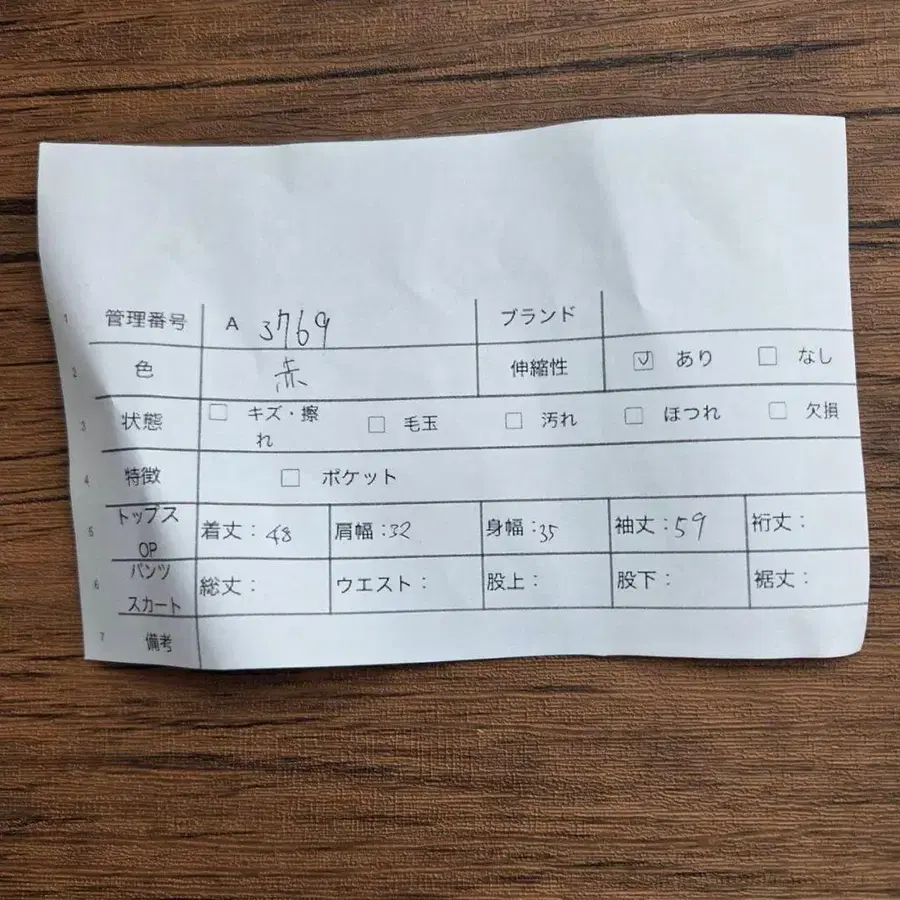 1 管理番号 A 3769 ブランド
2 色 赤 伸縮性 ☑ あり ☐ なし
3 状態 ☐ キズ・擦れ ☐ 毛玉 ☐ 汚れ ☐ ほつれ ☐ 欠損
4 特徴 ☐ ポケット
5 トップス OP 着丈：48 肩幅：32 身幅：35 袖丈：59 裄丈：
6 パンツ スカート 総丈： ウエスト： 股上： 股下： 裾丈：
7 備考